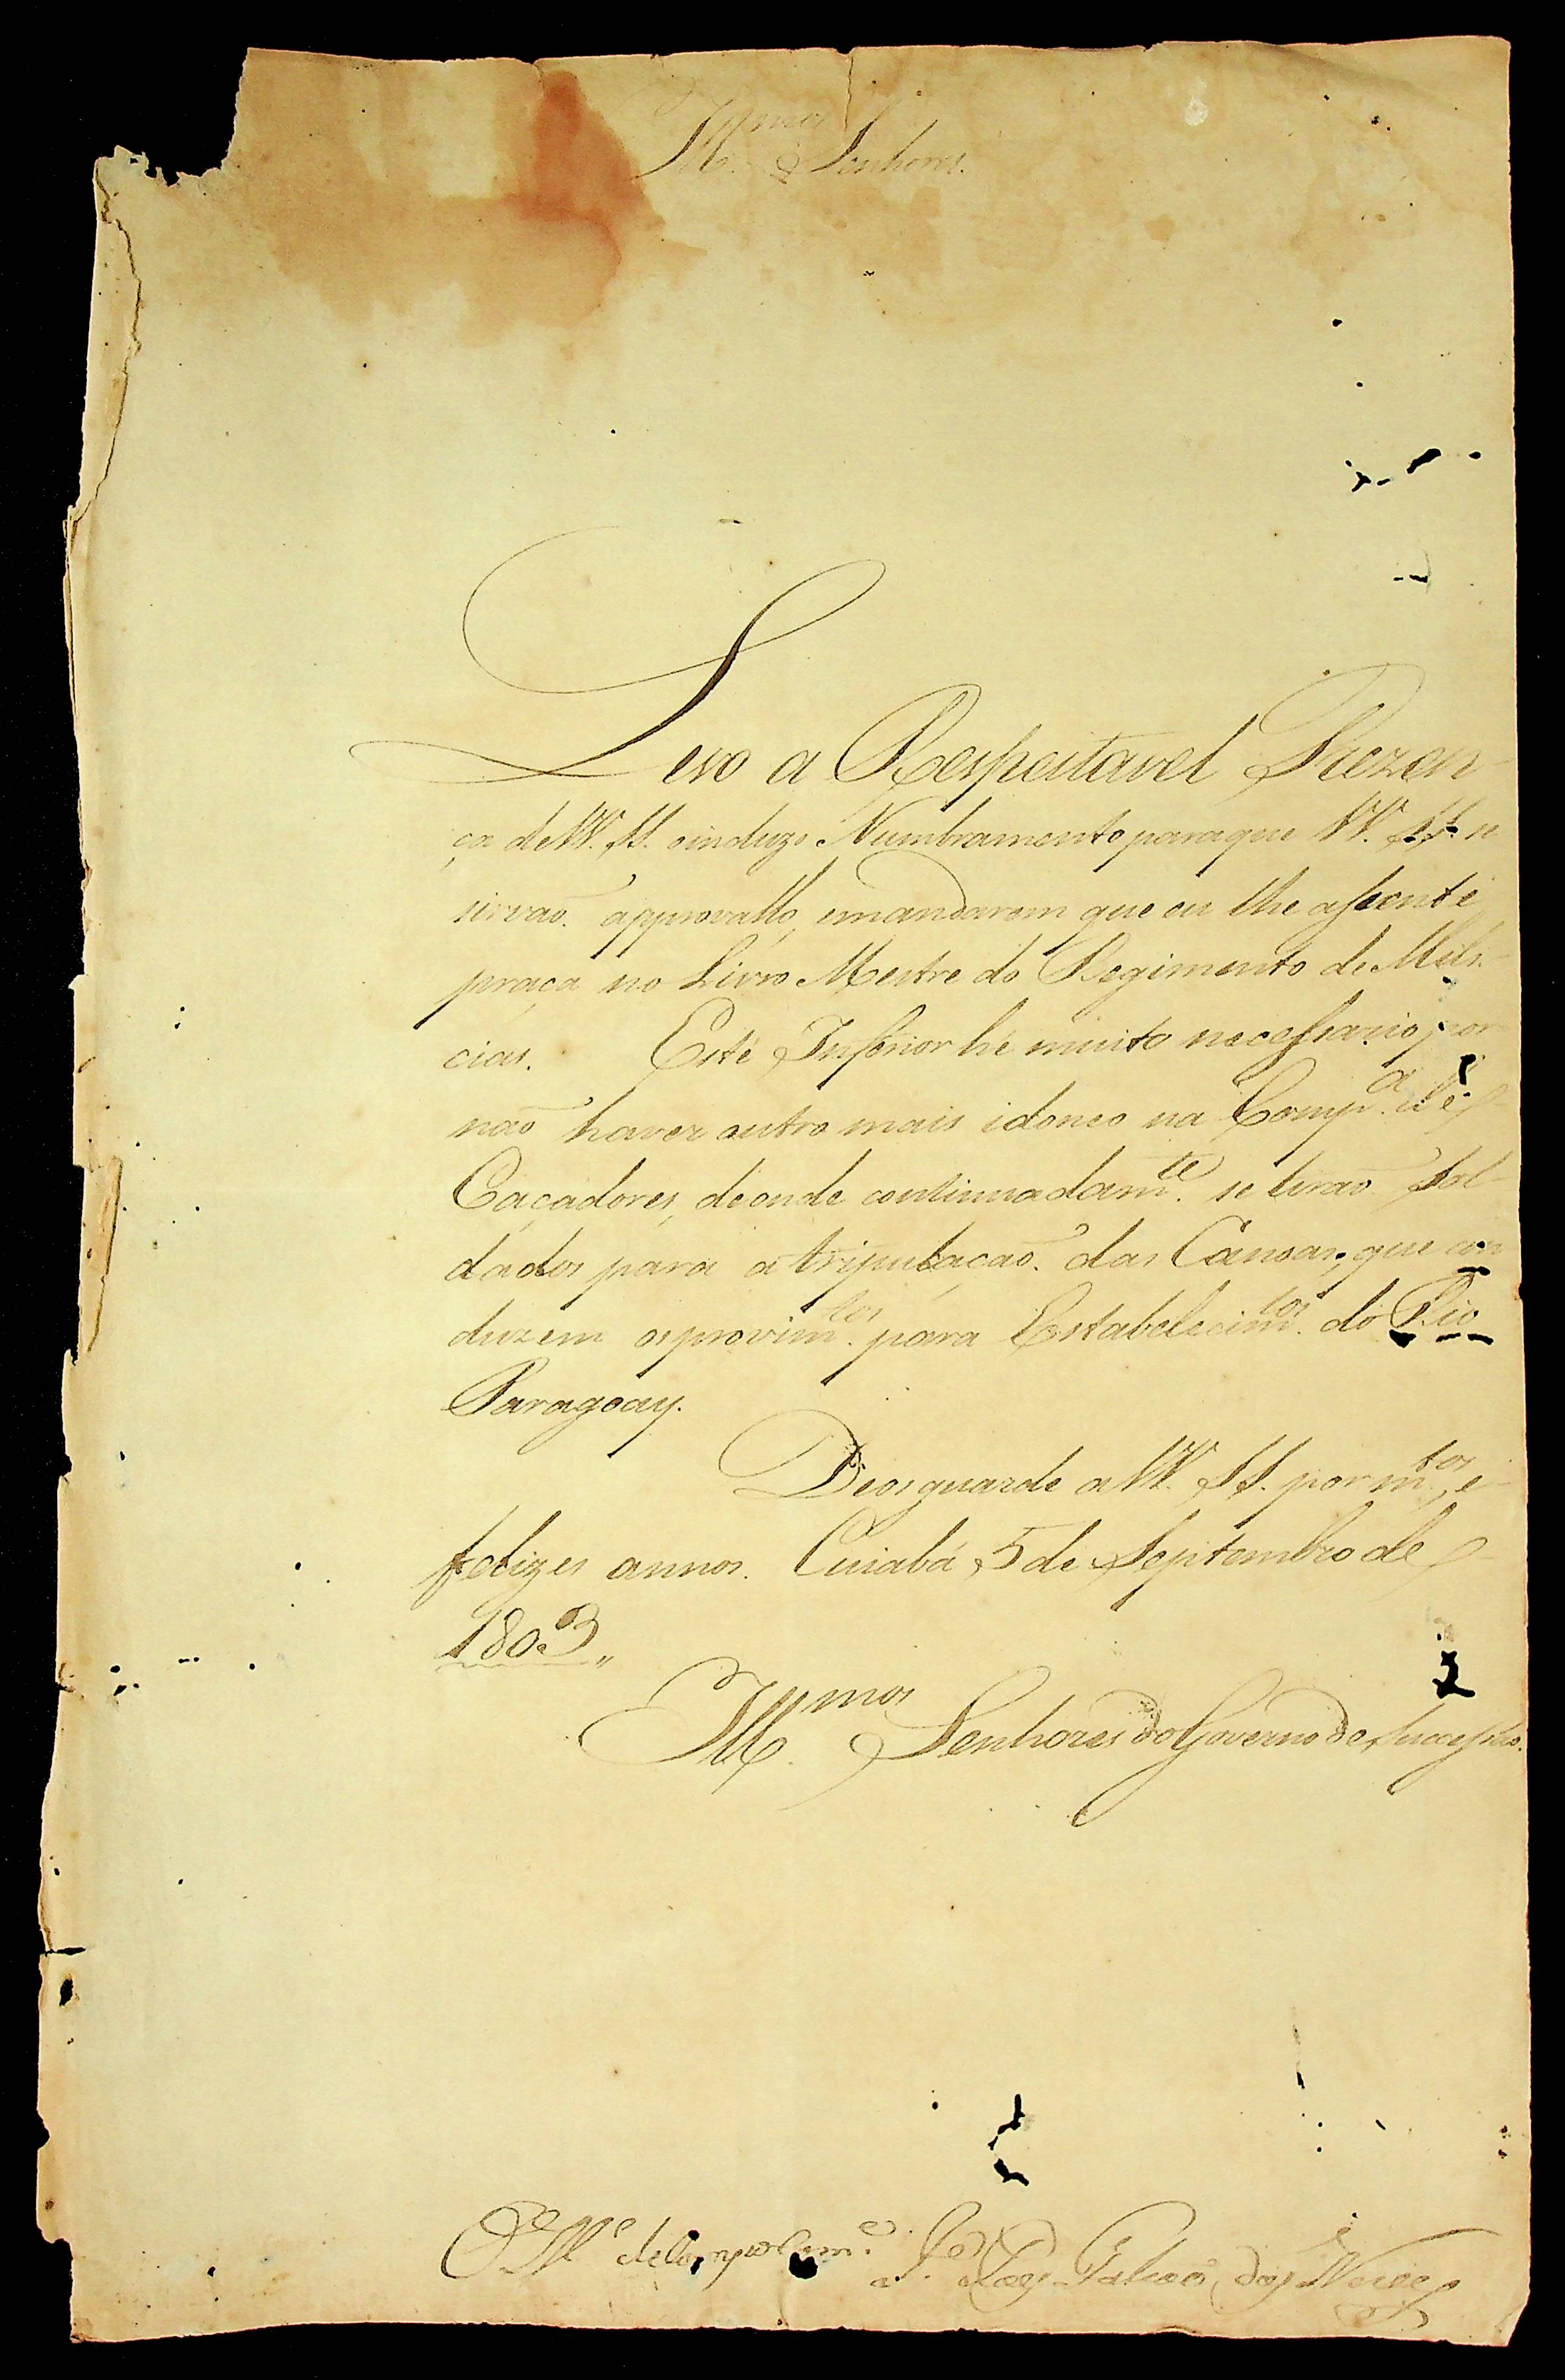 Ill.mos Senhores.
Levo a Respeitavel Prezen-
ça de VV. SS. o induzo Numbramento para que VV. SS. se
sirvaõ approvallo, e mandarem que eu lhe assente
praça no Livro Mestre do Regimento de Mili-
cias. Este Inferior hé muito necessario, por
naõ haver outro mais idoneo na Comp.a de
Caçadores, de onde continuadam.te se tiraõ Sol-
dados para a tripulaçaõ das Canoas, que con
duzem os provim.tos para Estabelecim.tos do Rio
Paragoay.
Deos guarde a VV. SS. por m.tos, e
felizes annos. Cuiabá 5 de Septembro de
1803,,
Ill.mos Senhores do Governo de Successaõ.
Joze Falcaõ das Neves